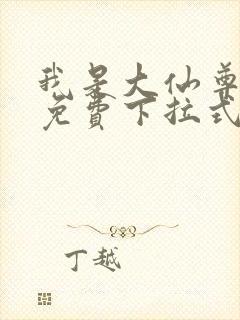 我是大仙尊
免費下拉式
丁越